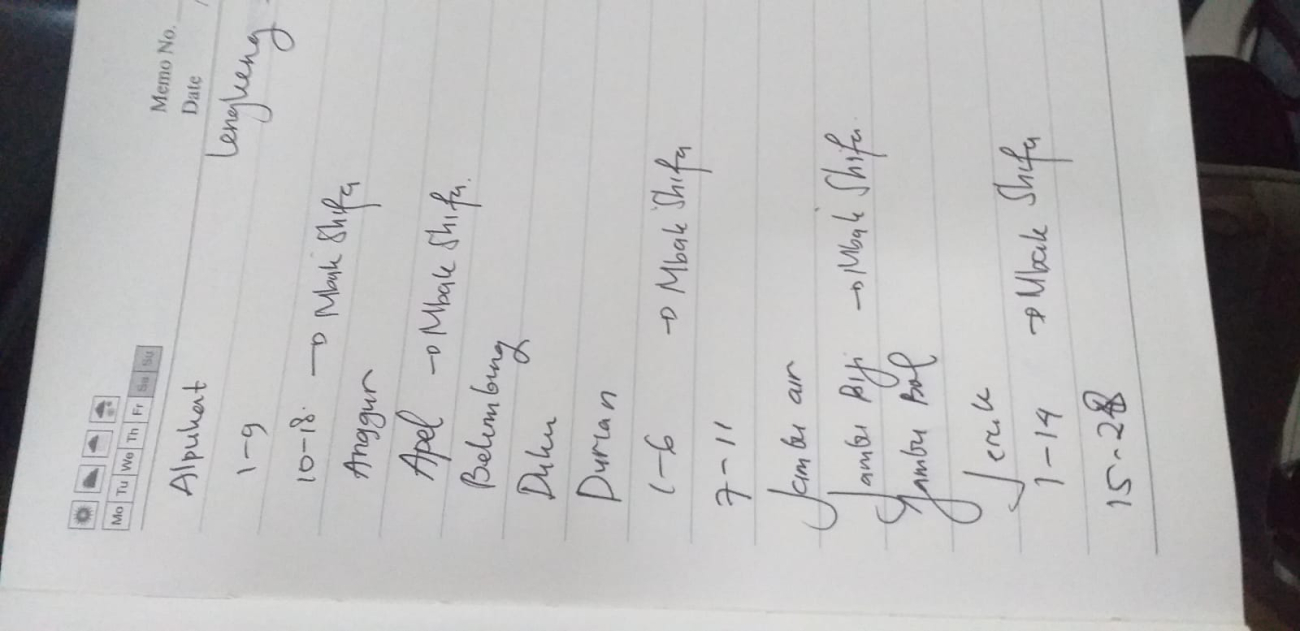 Memo No.
Date /
Mo Tu We Th Fr Sa Su
Alpukat Lengkeng
1-9
10-18. → Mbak Shifa
Anggur
Apel → Mbak Shifa.
Belimbing
Duku
Durian
1-6 → Mbak Shifa
7-11
Jambu air
Jambu Biji → Mbak Shifa.
Jambu Bol
Jeruk
1-14 → Mbak Shifa
15-28